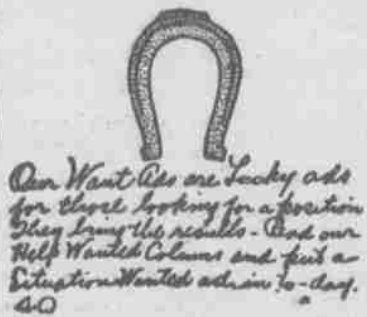 Our Want Ads are Lucky ads
for those looking for a position
They bring the results - Read our
Help Wanted Column and put a
Situation Wanted ad in to-day.
40